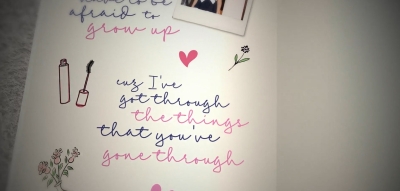 have to be
afraid to
grow up
cuz I've
got through
the things
that you've
gone through